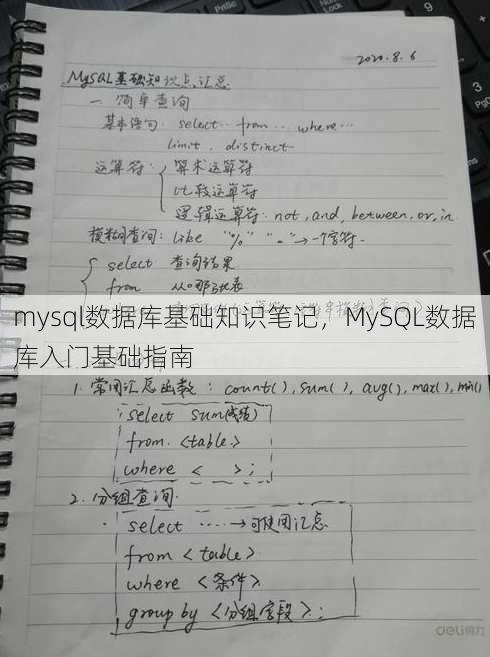 2020.8.6
MySQL基础知识点汇总
一 简单查询
基本语句: select... from... where...
limit, distinct
运算符: 算术运算符
比较运算符
逻辑运算符: not, and, between, or, in
模糊查询: like "%" "_"→一个字符.
select 查询结果
from 从哪张表
mysql数据库基础知识笔记，MySQL数据
库入门基础指南
1. 常用汇总函数: count(), sum(), avg(), max(), min()
select sum(成绩)
from <table>
where < >;
2. 分组查询.
select ....→可使用汇总
from <table>
where <条件>
group by <分组字段>;
deli得力